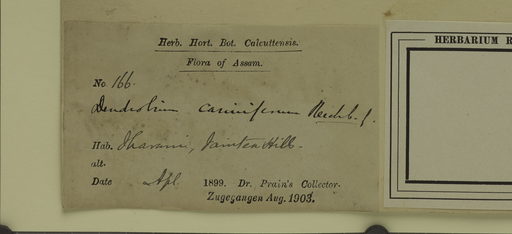 Herb. Hort. Bot. Calcuttensis.
Flora of Assam.
HERBARIUM R
No. 166.
Dendrobium cariniferum Reichb. f.
Hab. Jharain, Jaintea Hill.
alt.
Date Apl. 1899. Dr. Prain's Collector.
Zugegangen Aug. 1903.